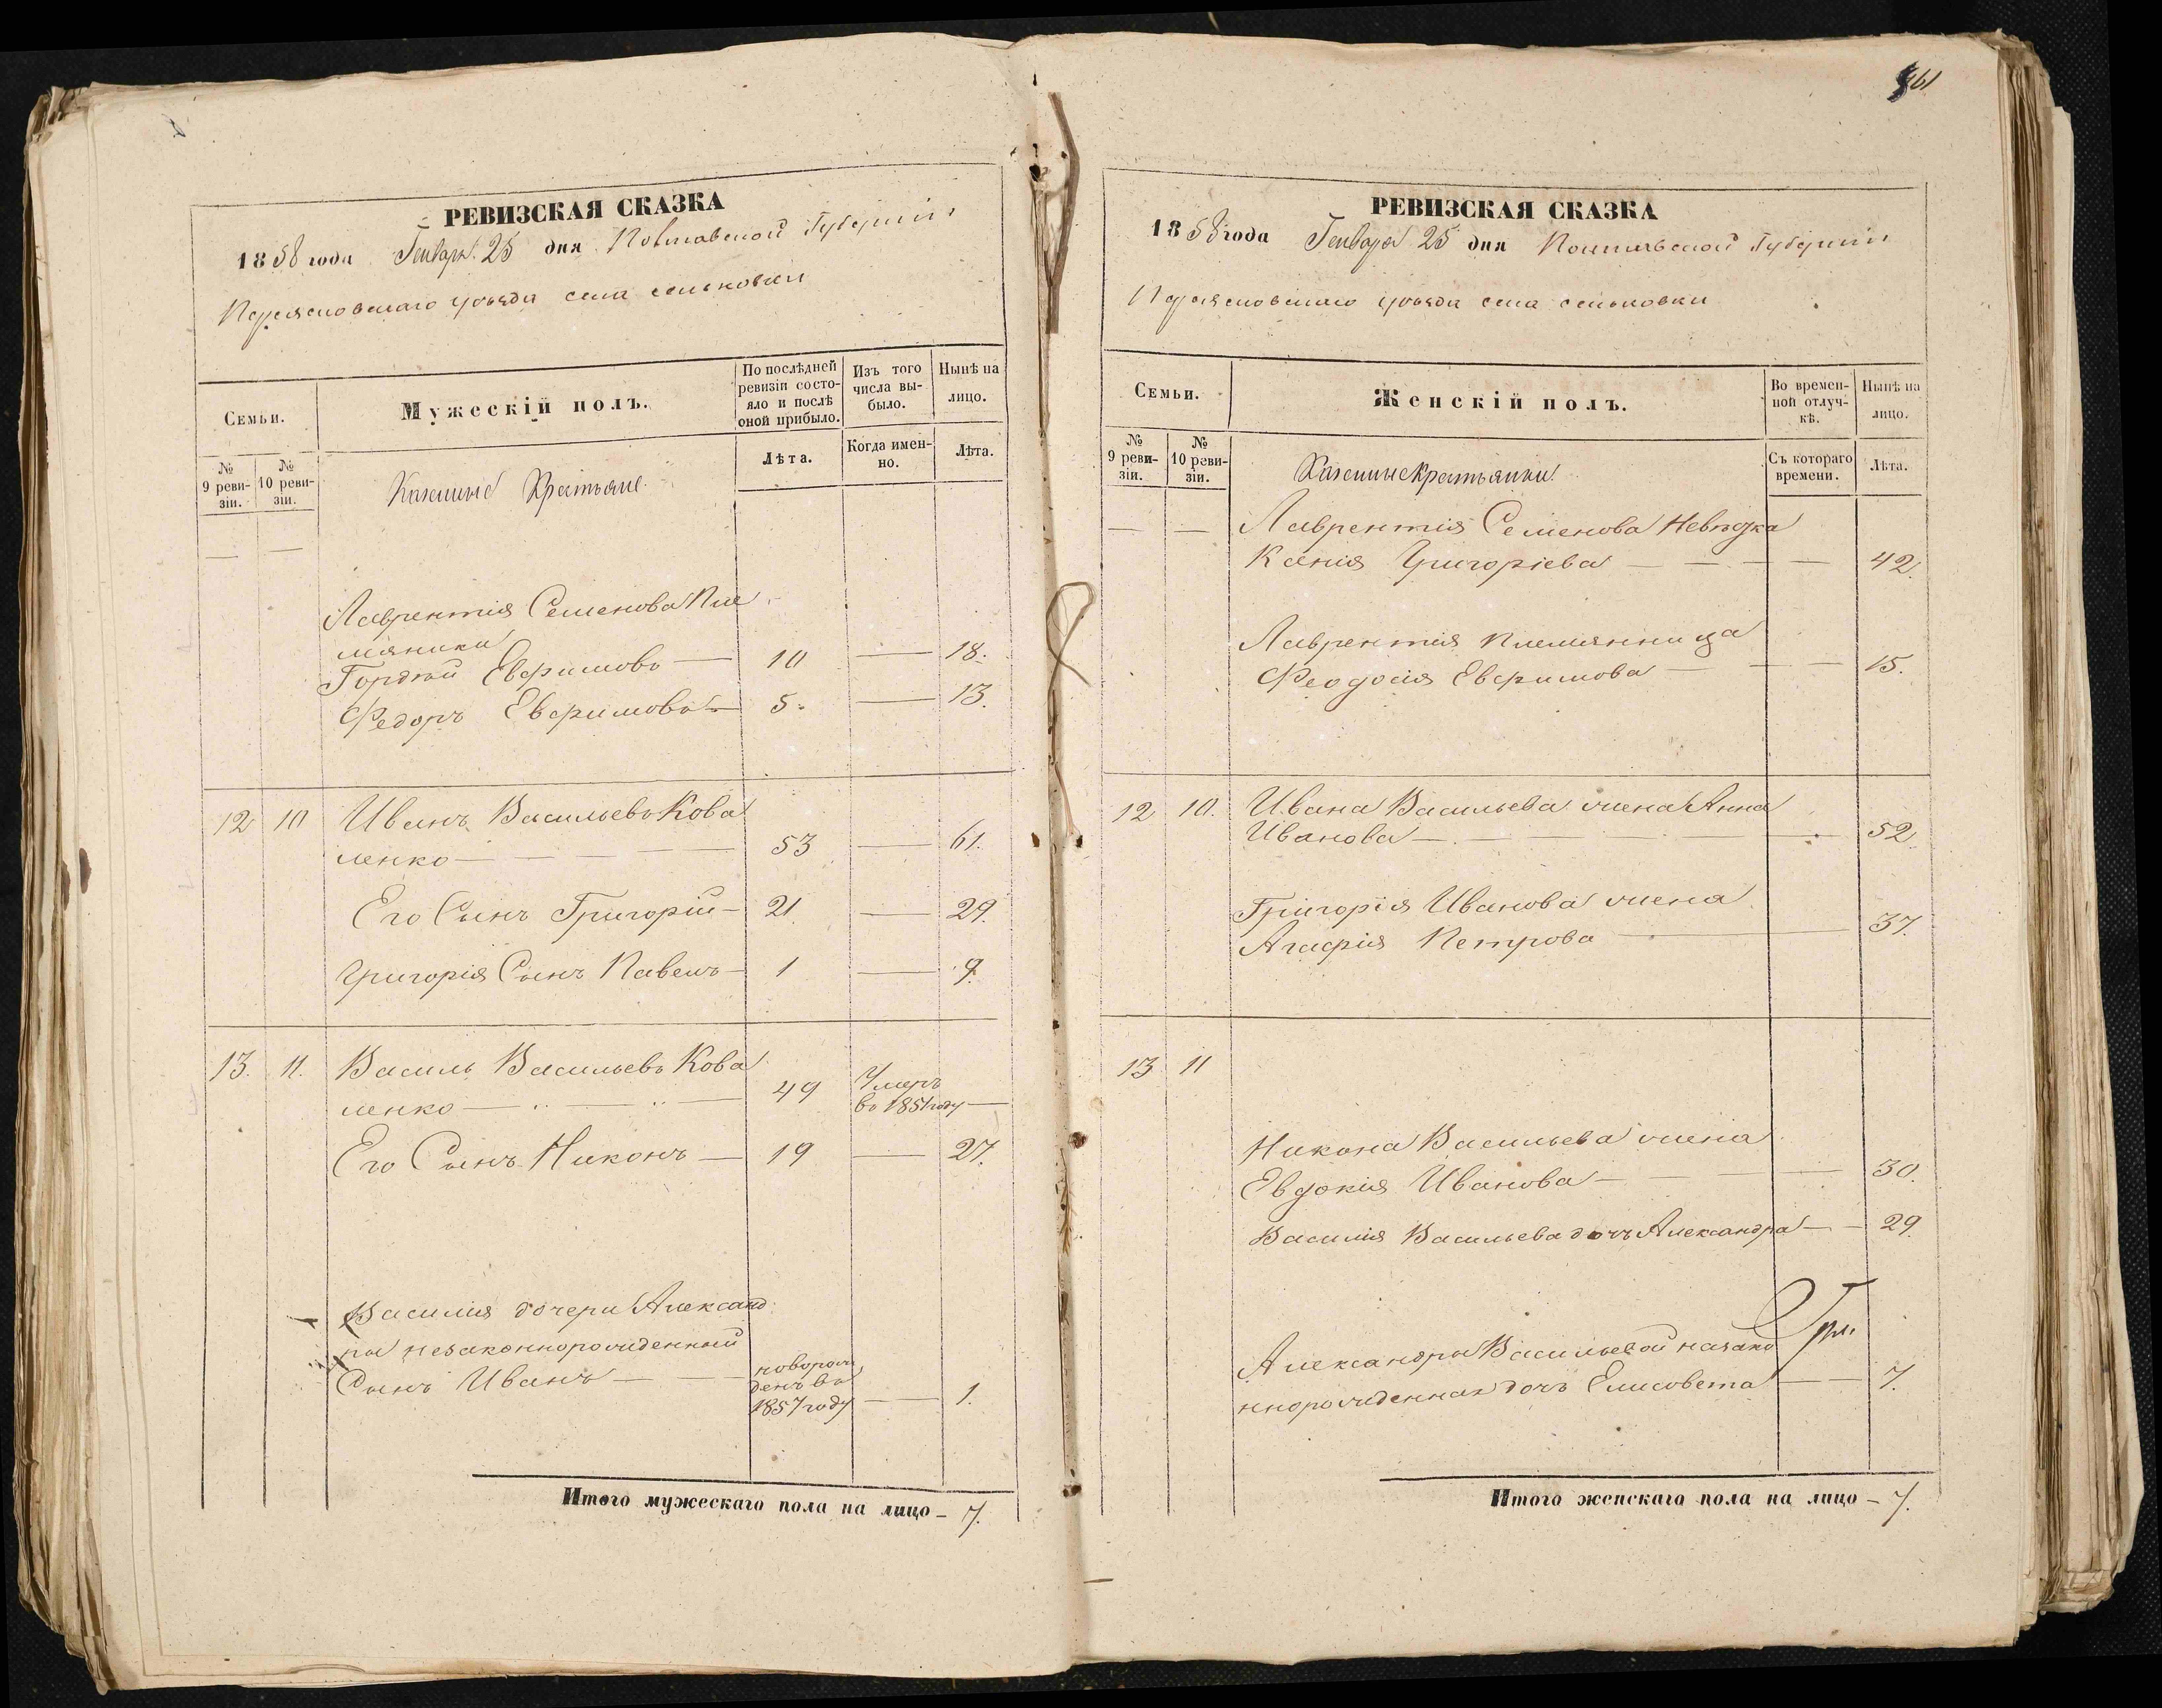 РЕВИЗСКАЯ СКАЗКА
1858 года Генваря 25 дня Полтавской Губерніи
Переясловскаго уѣзда села сеньковки
Семьи.
Мужескій полъ.
По послѣдней ревизіи состояло и послѣ оной прибыло.
Изъ того числа выбыло.
Нынѣ на лицо.
№ 9 ревизіи.
№ 10 ревизіи.
Казенные Крестьяне.
Лѣта.
Когда именно.
Лѣта.
— —
Лаврентія Семенова Пле
мяники
Гордѣй Евфимовъ — 10 — 18.
Федоръ Евфимовъ — 5. — 13.
12 10 Иванъ Васильевъ Кова
ленко — — — — 53 — 61.
Его Сынъ Григорій — 21. — 29.
Григорія Сынъ Павелъ — 1 — 9.
13. 11. Василь Васильевъ Кова
ленко — — — 49 Умеръ во 1851 году —
Его Сынъ Никонъ — 19 — 27.
Василія дочери Александ
ры незаконнорожденный
Сынъ Иванъ — — новорожденъ во 1857 году — 1.
Итого мужескаго пола на лицо — 7.
461
РЕВИЗСКАЯ СКАЗКА
1858 года Генваря 25 дня Полтавской Губерніи
Переясловскаго уѣзда села сеньковки
Семьи.
Женскій полъ.
Во временной отлучкѣ.
Нынѣ на лицо.
№ 9 ревизіи.
№ 10 ревизіи.
Казенные Крестьянки.
Съ котораго времени.
Лѣта.
— — Лаврентія Семенова Невѣстка
Ксенія Григоріева — — — — 42.
Лаврентія племянница
Феодосія Евфимова — — — 15.
12 10. Ивана Васильева жена Анна
Иванова — — — 52
Григорія Иванова жена
Агафія Петрова — — 37.
13 11
Никона Васильева жена
Евдокія Иванова — — — 30.
Василія Васильева дочь Александра — — 29.
Александры Васильевой незако
ннорожденная дочь Елисовета — — 7.
Итого женскаго пола на лицо — 7.